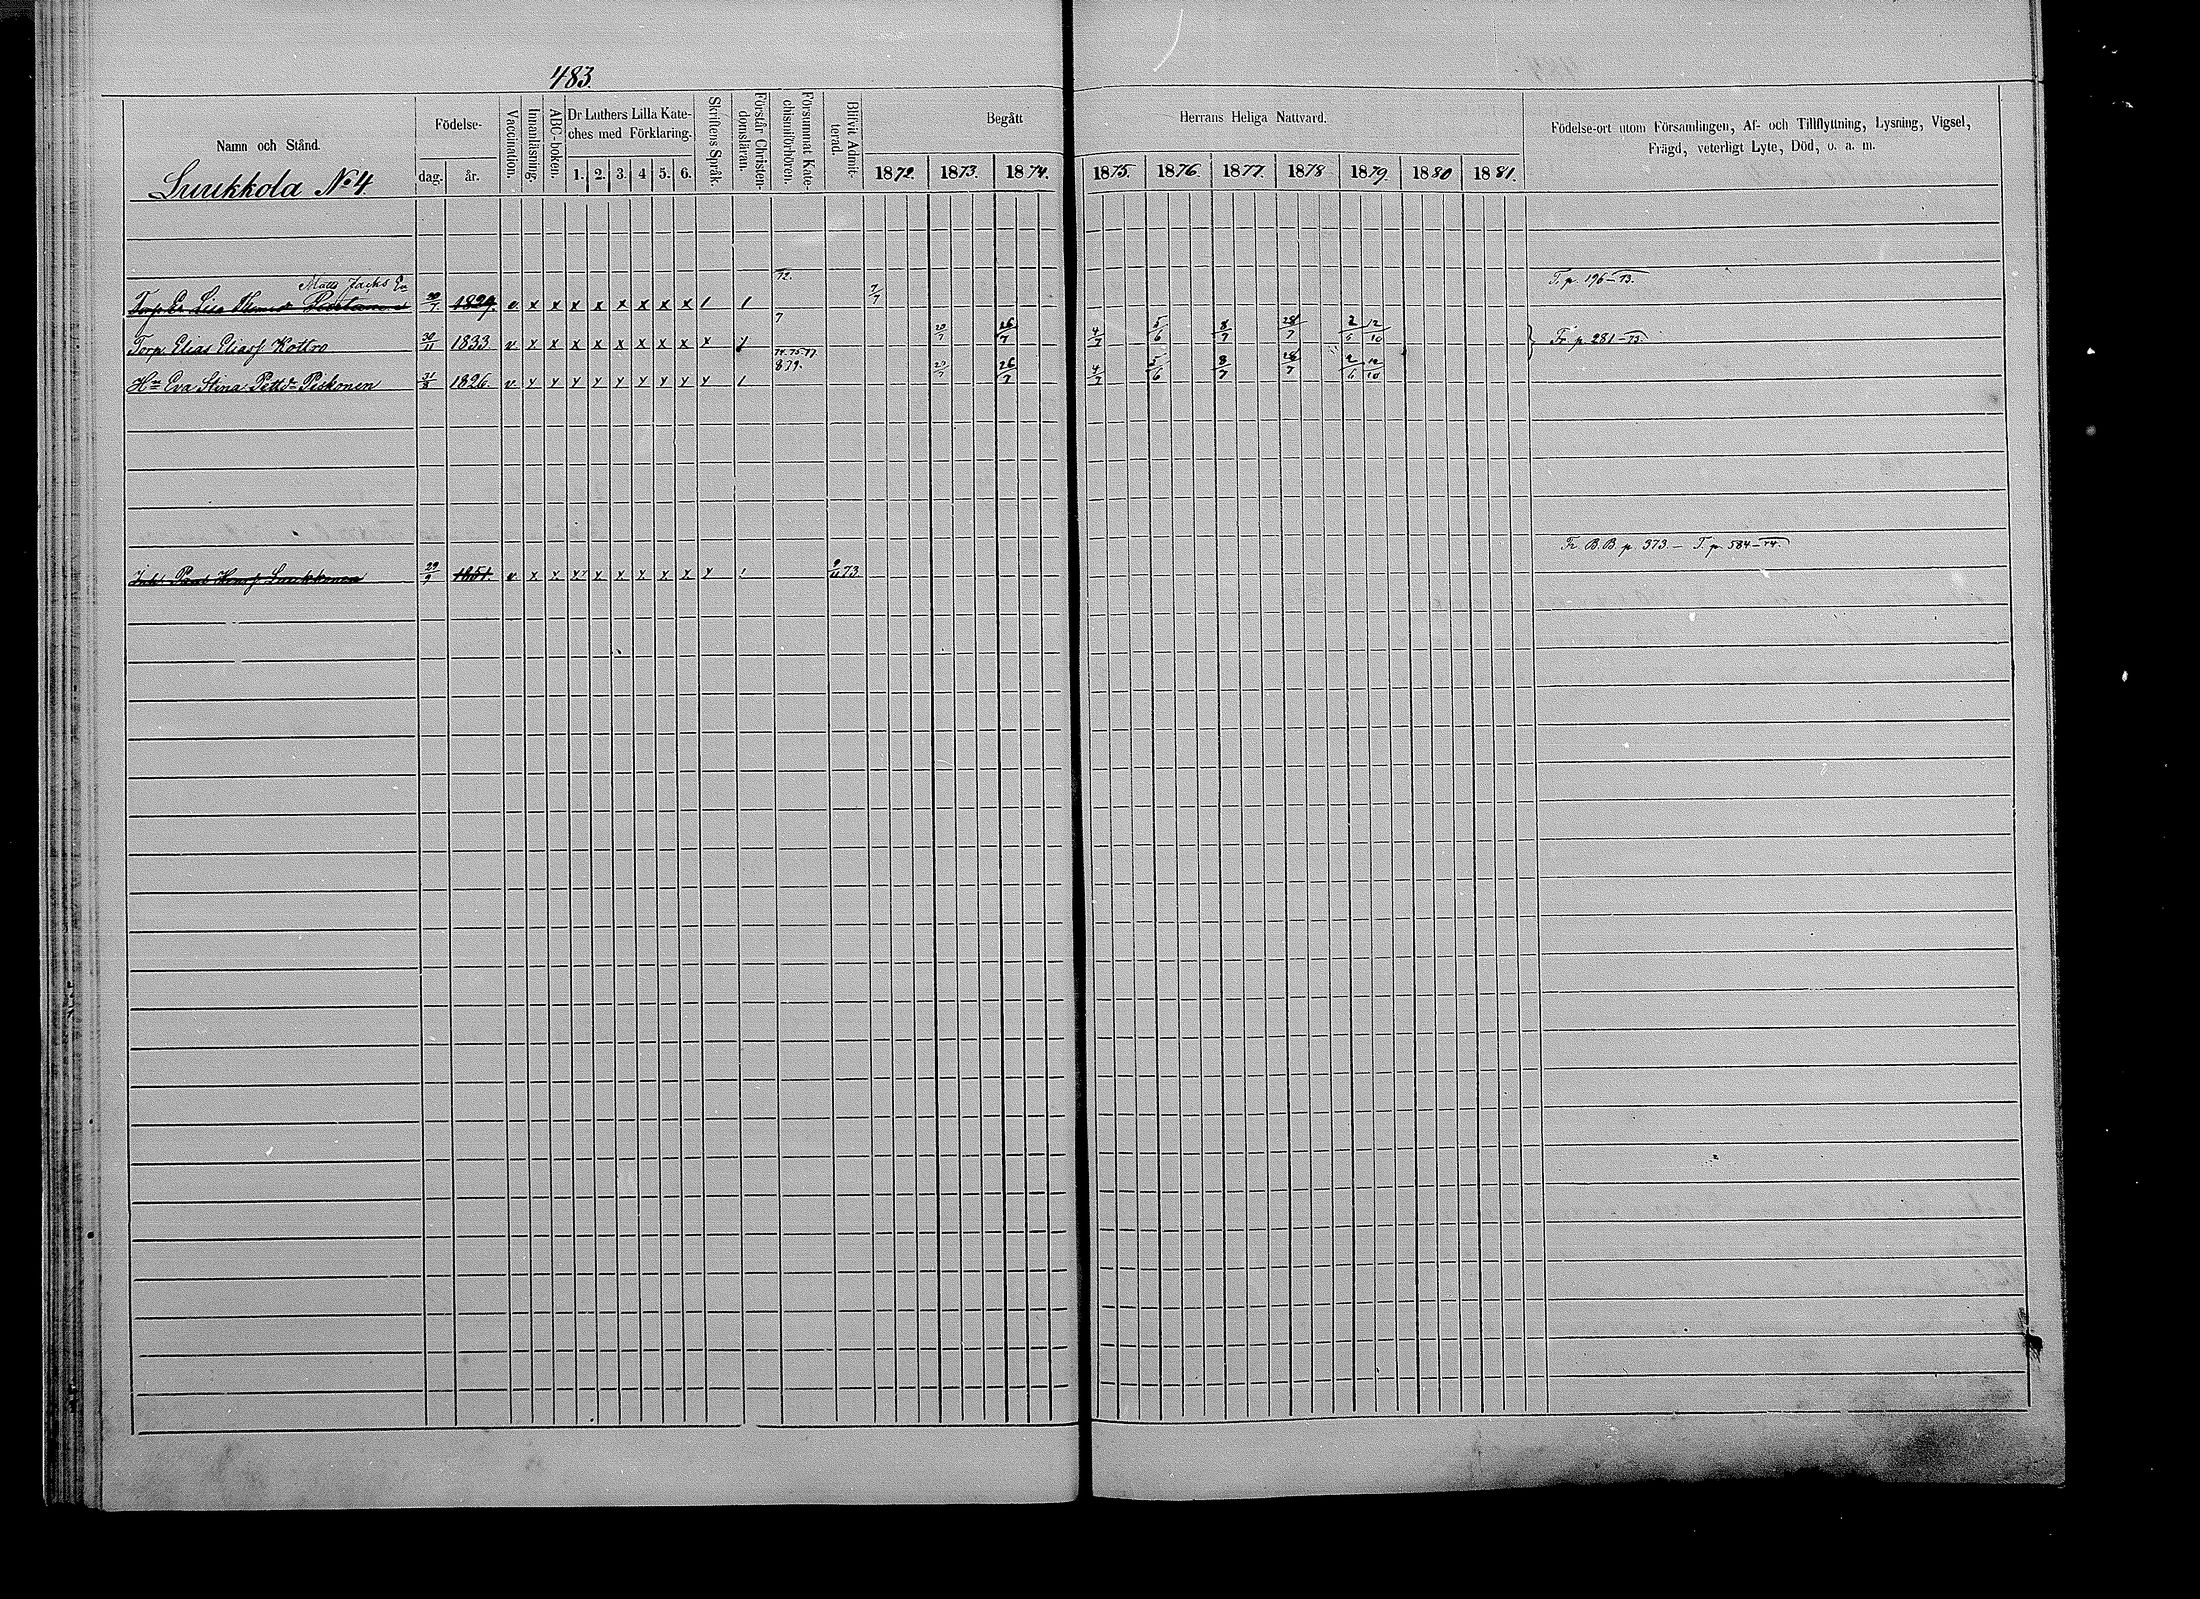 483.
Namn och Stånd.
Luukkola No 4
Födelse-
dag. år.
Vaccination.
Innanläsning.
ABC-boken.
Dr Luthers Lilla Kate-
ches med Förklaring.
1. 2. 3. 4 5. 6.
Skriftens Språk.
Förstår Christen-
domsläran.
Försummat Kate-
chismiförhören.
Blifvit Admit-
terad.
Begått Herrans Heliga Nattvard.
1872. 1873. 1874. 1875. 1876. 1877. 1878 1879. 1880 1881.
Födelse-ort utom Församlingen, Af- och Tillflyttning, Lysning, Vigsel,
Frägd, veterligt Lyte, Död, o. a. m.
72. T. p. 196-73.
Matts Jacks En
Torp. En Lisa Thomsdr 20/7. 1829. v x x x x x x x x 1 1 7/7
7
Torp. Elias Eliass Kottro 30/11 1833 v x x x x x x x x x 20/7 26/7 4/7 5/6 8/7 28/7 2/6 12/10 Fr. p. 281-73.
74. 75. 77.
879.
Hu Eva Stina Pettsdr Piskonen 31/8 1826. v x x x x x x x x x 1 20/7 26/7 4/7 5/6 8/7 28/7 2/6 12/10
Fr. B.B. p. 373. - T. p. 584-74.
Inh. Paul Luukkonen 29/9 1851. v x x x x x x x x x 9/11 73